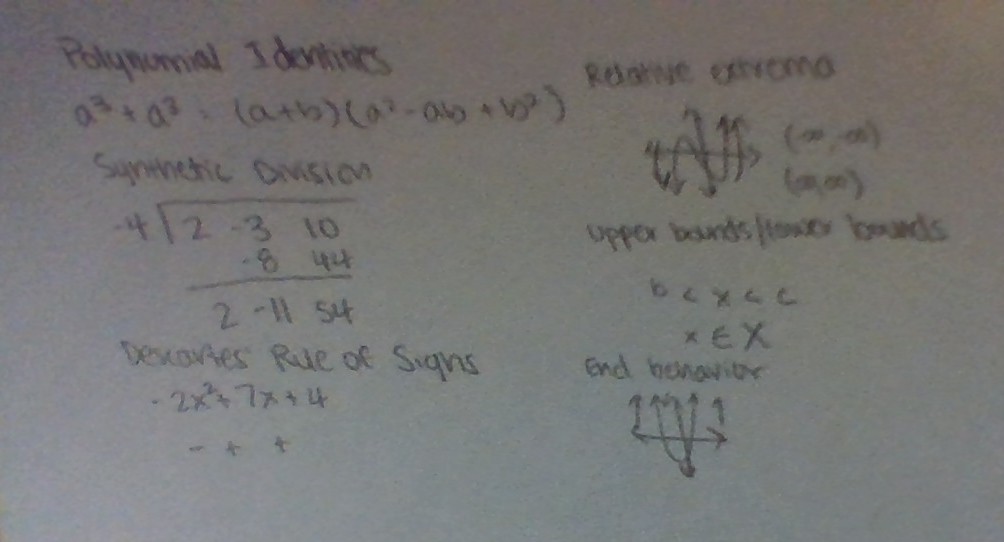 Polynomial Identities
a³ + a³ = (a+b)(a² - ab + b²)
Synthetic Division
-4 2 -3 10
-8 44
2 -11 54
Descartes' Rule of Signs
-2x²+7x+4
- + +
Relative extrema
Upper bounds/lower bounds
b < x < c
x ∈ X
End behavior